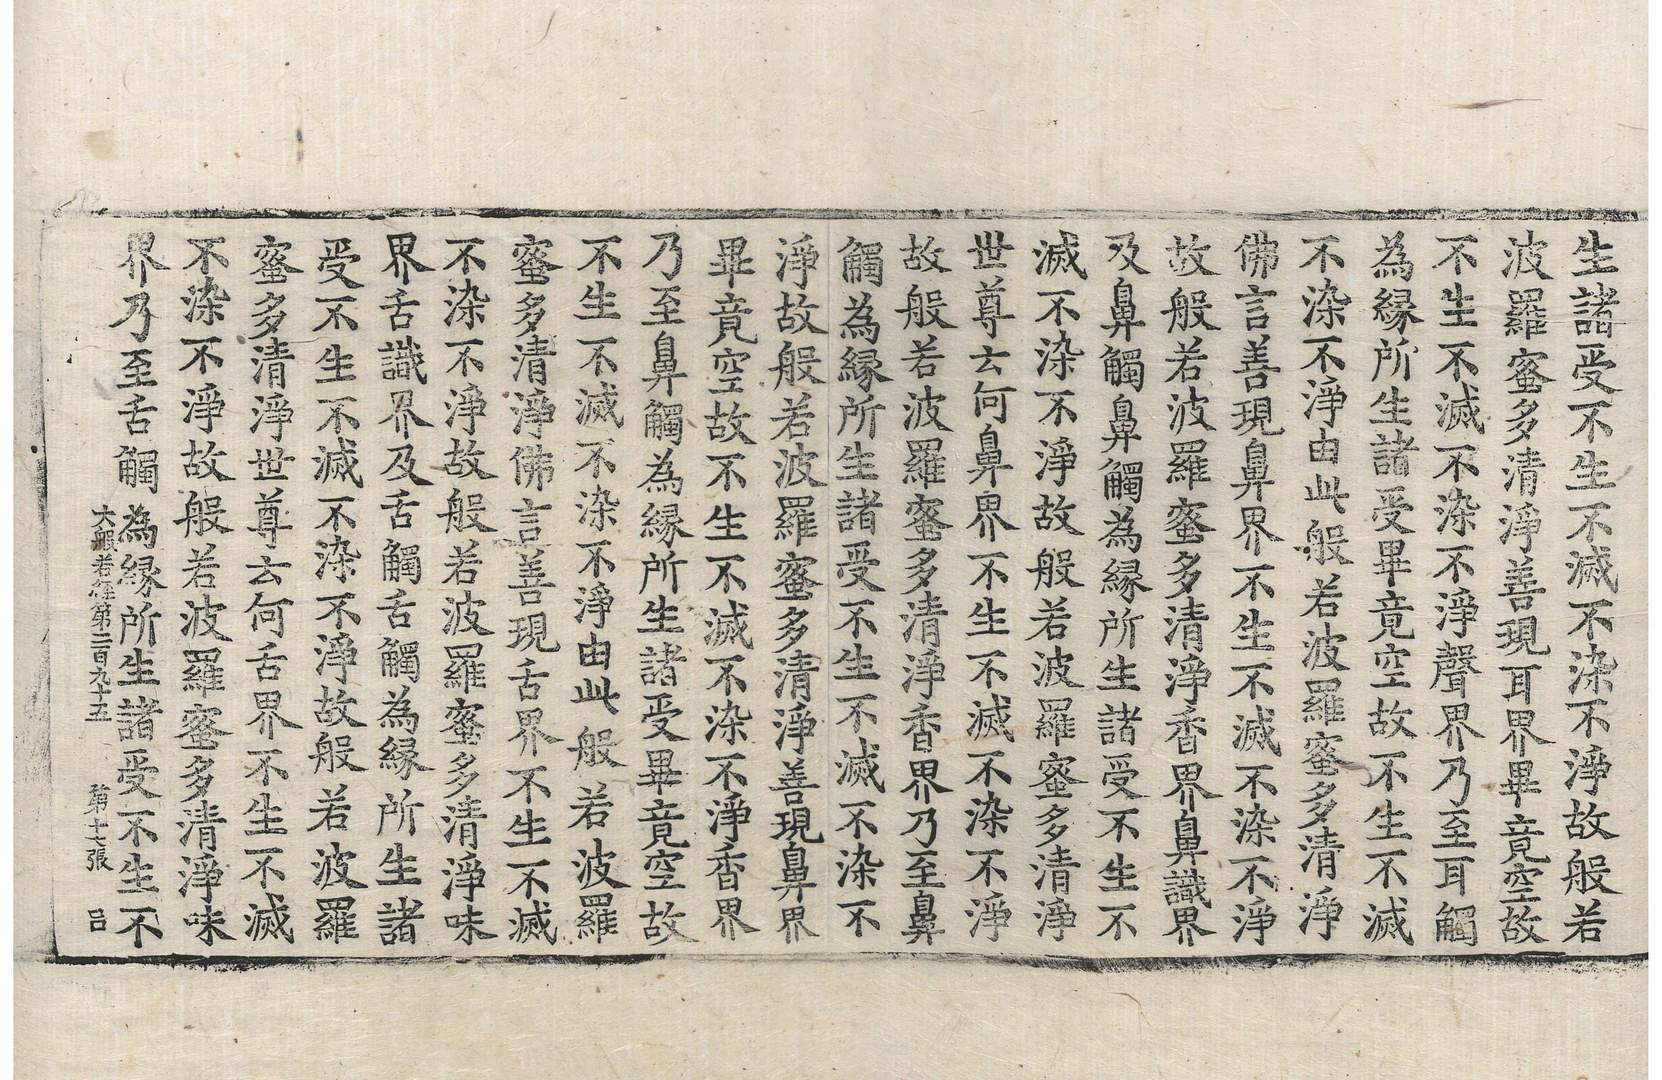 生諸受不生不滅不染不淨故般若
波羅蜜多清淨善現耳界畢竟空故
不生不滅不染不淨聲界乃至耳觸
為縁所生諸受畢竟空故不生不滅
不染不淨由此般若波羅蜜多清淨
佛言善現鼻界不生不滅不染不淨
故般若波羅蜜多清淨香界鼻識界
及鼻觸鼻觸為縁所生諸受不生不
滅不染不淨故般若波羅蜜多清淨
世尊云何鼻界不生不滅不染不淨
故般若波羅蜜多清淨香界乃至鼻
觸為縁所生諸受不生不滅不染不
淨故般若波羅蜜多清淨善現鼻界
畢竟空故不生不滅不染不淨香界
乃至鼻觸為縁所生諸受畢竟空故
不生不滅不染不淨由此般若波羅
蜜多清淨佛言善現舌界不生不滅
不染不淨故般若波羅蜜多清淨味
界舌識界及舌觸舌觸為縁所生諸
受不生不滅不染不淨故般若波羅
蜜多清淨世尊云何舌界不生不滅
不染不淨故般若波羅蜜多清淨味
界乃至舌觸為縁所生諸受不生不
大般若經第二百九十五 第十七張 呂